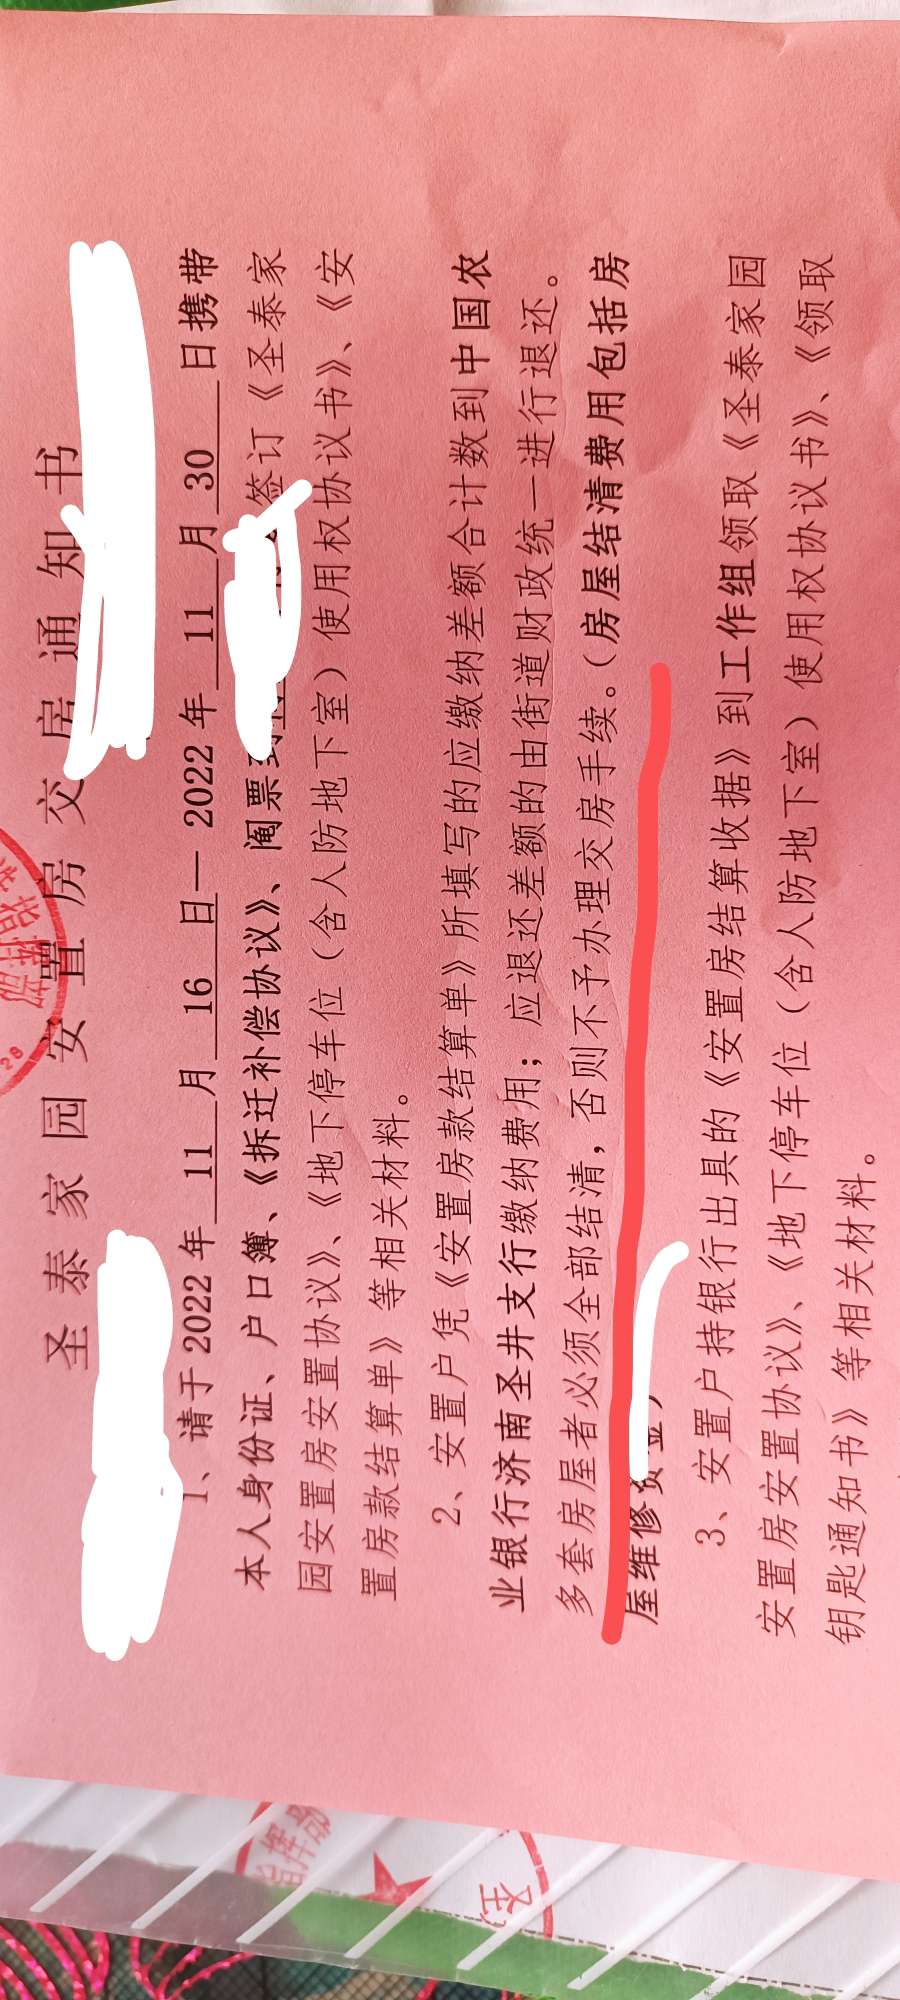 圣泰家园安置房交房通知书
1、请于 2022 年 11 月 16 日— 2022 年 11 月 30 日携带
本人身份证、户口簿、《拆迁补偿协议》、阄票到 签订《圣泰家
园安置房安置协议》、《地下停车位（含人防地下室）使用权协议书》、《安
置房款结算单》等相关材料。
2、安置户凭《安置房款结算单》所填写的应缴纳差额合计数到中国农
业银行济南圣井支行缴纳费用；应退还差额的由街道财政统一进行退还。
多套房屋者必须全部结清，否则不予办理交房手续。（房屋结清费用包括房
屋维修资金）
3、安置户持银行出具的《安置房结算收据》到工作组领取《圣泰家园
安置房安置协议》、《地下停车位（含人防地下室）使用权协议书》、《领取
钥匙通知书》等相关材料。
指挥部
28
指挥部
圣